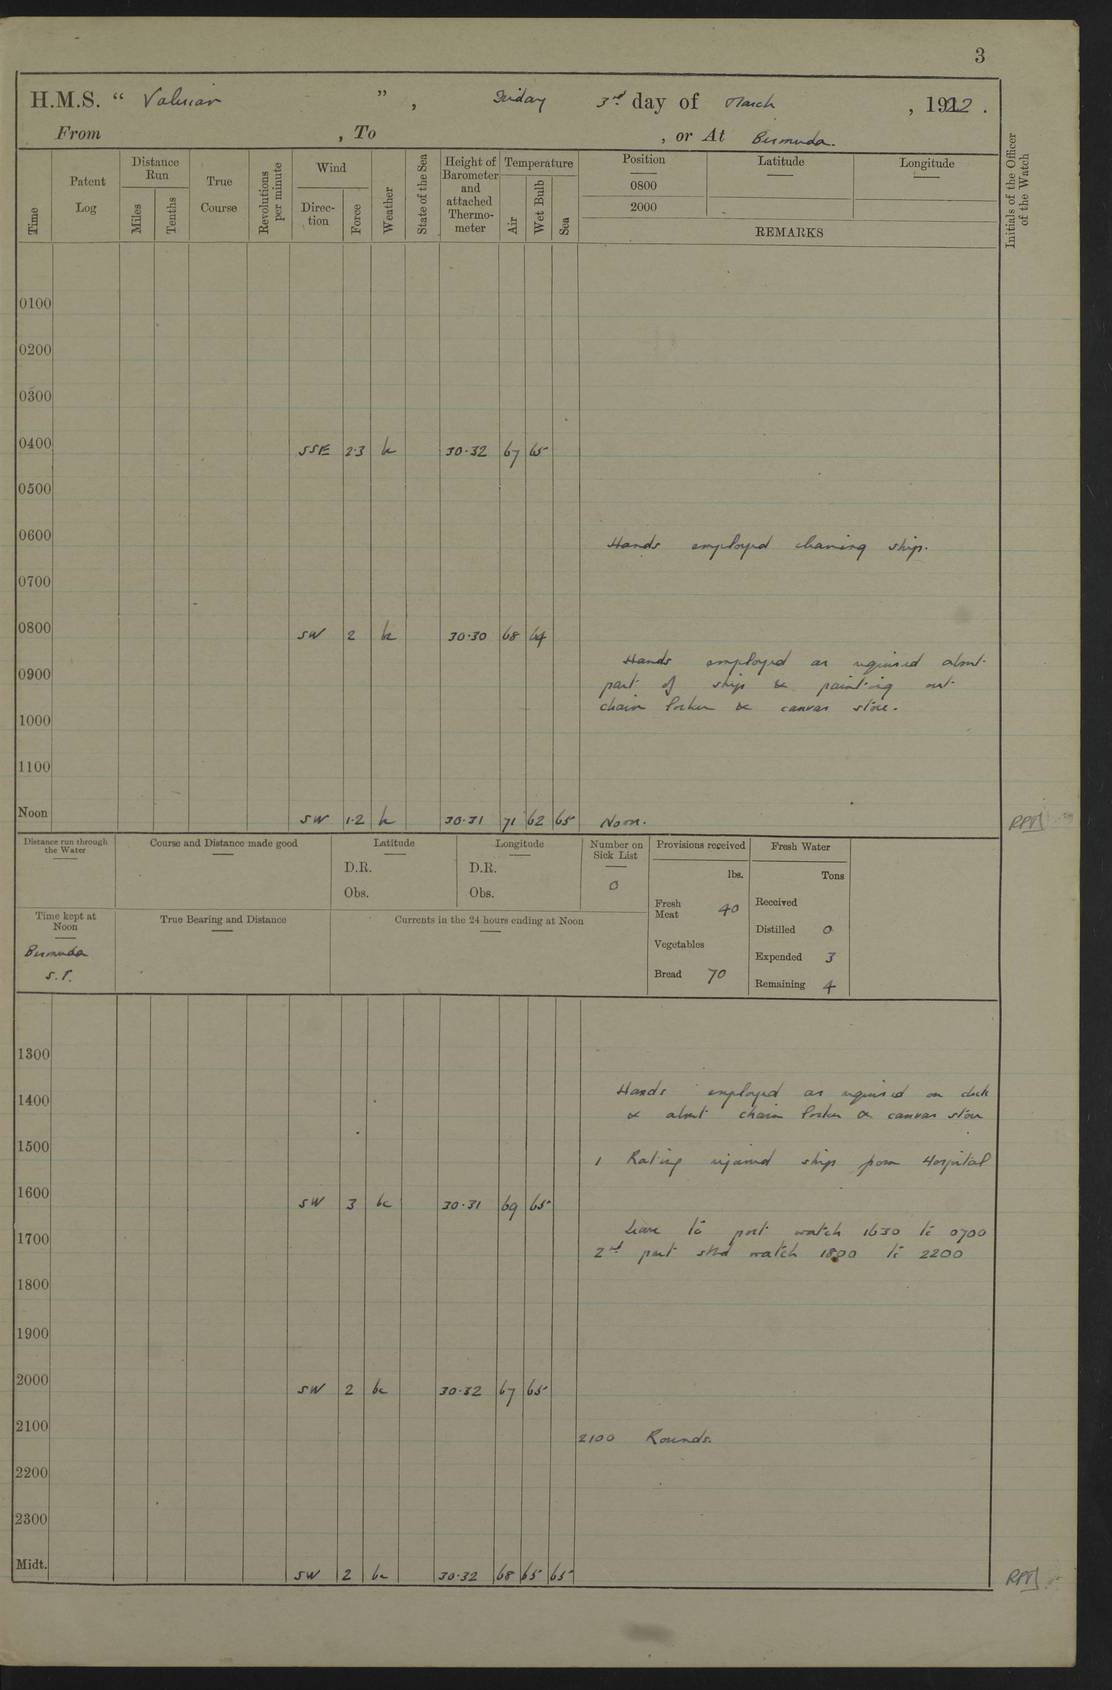 3
H.M.S. " Valerian ", Friday 3rd day of March, 1922.
From , To , or At Bermuda.
Time
Patent Log
Distance Run
Miles
Tenths
True Course
Revolutions per minute
Wind
Direction
Force
Weather
State of the Sea
Height of Barometer and attached Thermometer
Temperature
Air
Wet Bulb
Sea
Position Latitude Longitude
0800
2000
REMARKS
Initials of the Officer of the Watch
0100
0200
0300
0400 SSE 2·3 bc 30·32 67 65
0500
0600 Hands employed cleaning ship.
0700
0800 SW 2 bc 30·30 68 64
Hands employed as required about
0900 part of ship & painting out
chain locker & canvas store.
1000
1100
Noon SW 1·2 bc 30·31 71 62 65 Noon. RPB
Distance run through the Water
Course and Distance made good
Latitude
D.R.
Obs.
Longitude
D.R.
Obs.
Number on Sick List
0
Provisions received
lbs.
Fresh Meat 40
Vegetables
Bread 70
Fresh Water
Tons
Received
Distilled 0
Expended 3
Remaining 4
Time kept at Noon
Bermuda
S.T.
True Bearing and Distance
Currents in the 24 hours ending at Noon
1300
1400 Hands employed as required on deck
& about chain locker & canvas store
1500 1 Rating rejoined ship from Hospital
1600 SW 3 bc 30·31 69 65
1700 Leave to port watch 1630 to 0700
2nd part stbd watch 1800 to 2200
1800
1900
2000 SW 2 bc 30·32 67 65
2100 2100 Rounds.
2200
2300
Midt. SW 2 bc 30·32 68 65 65 RPB